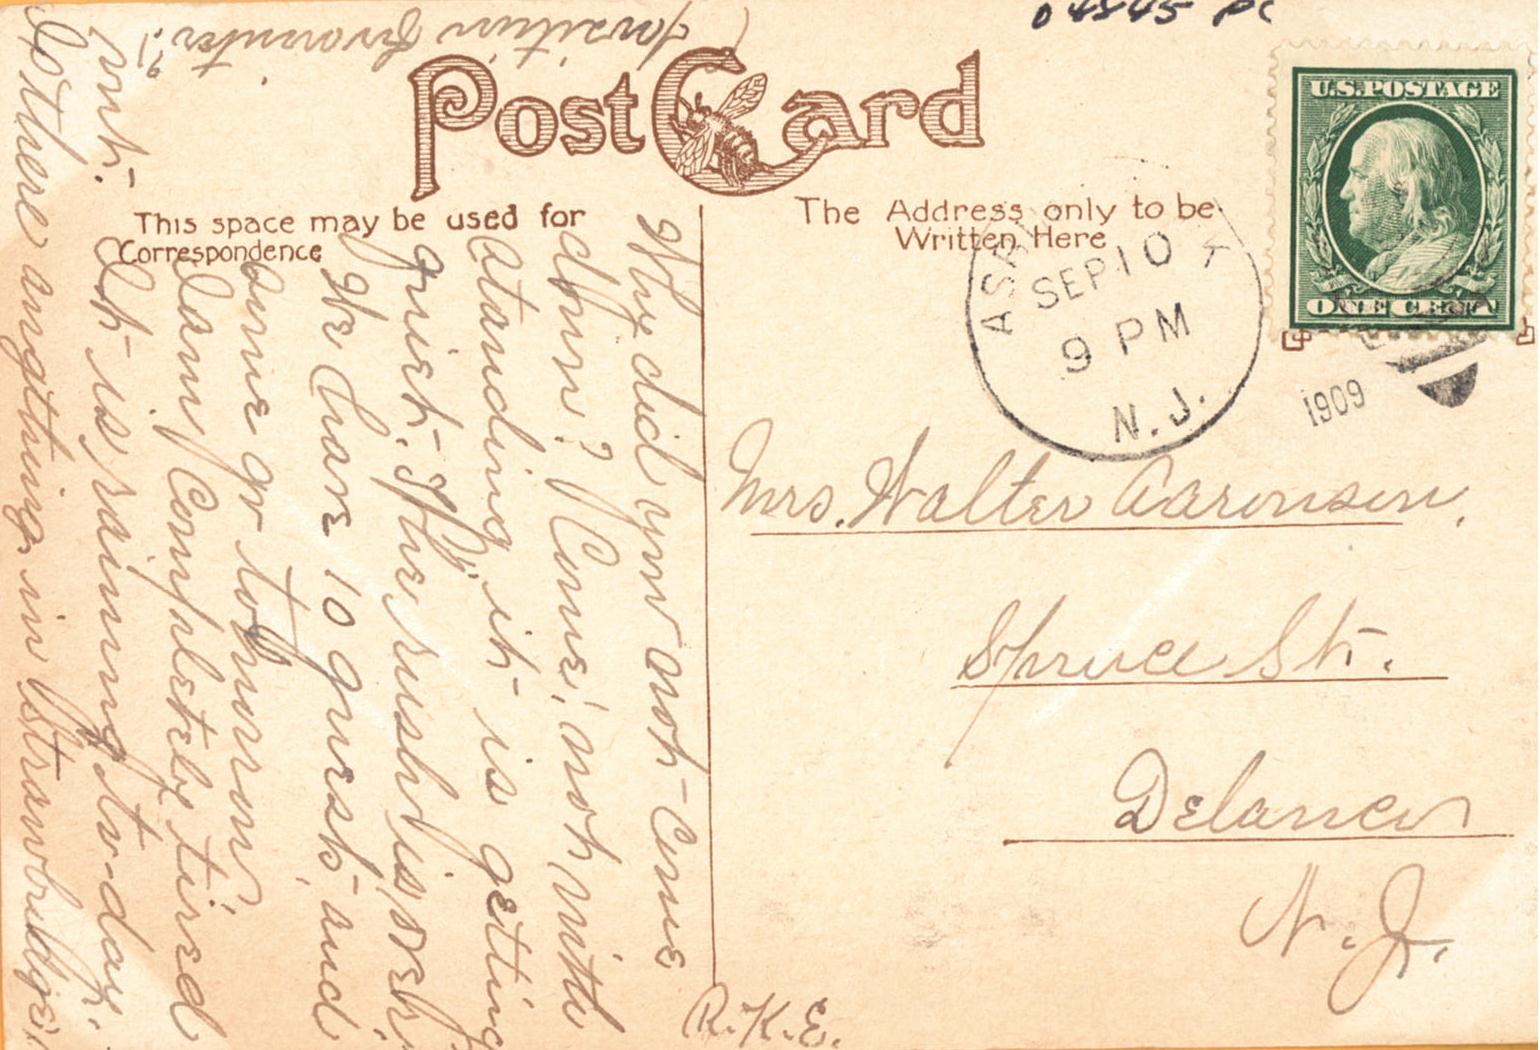 04845 PC
Post Card
This space may be used for
Correspondence
The Address only to be
Written Here
U.S. POSTAGE
ONE CENT
SEP 10
9 PM
N.J.
1909
Mrs. Walter Aaronson,
Spruce St.
Delanco
N.J.
Why did you not come
down? Come! not with
standing it is getting
quiet. The rush is over;
we have 10 guests and
some go tomorrow
I am completely tired
out.
It is raining to-day.
Is there anything in Istrawbridge's
position furniture?
R.K.E.